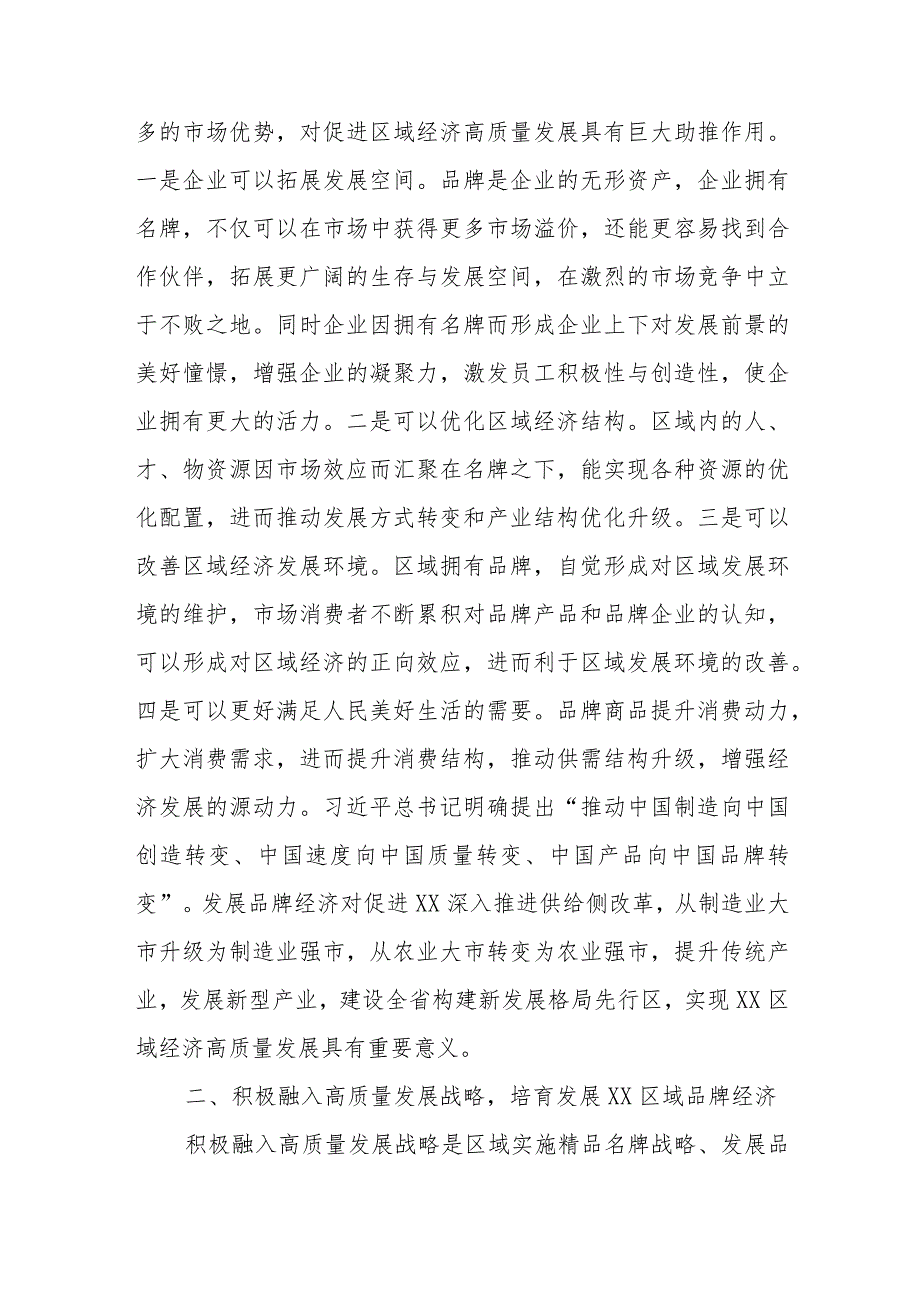 多的市场优势，对促进区域经济高质量发展具有巨大助推作用。
一是企业可以拓展发展空间。品牌是企业的无形资产，企业拥有
名牌，不仅可以在市场中获得更多市场溢价，还能更容易找到合
作伙伴，拓展更广阔的生存与发展空间，在激烈的市场竞争中立
于不败之地。同时企业因拥有名牌而形成企业上下对发展前景的
美好憧憬，增强企业的凝聚力，激发员工积极性与创造性，使企
业拥有更大的活力。二是可以优化区域经济结构。区域内的人、
才、物资源因市场效应而汇聚在名牌之下，能实现各种资源的优
化配置，进而推动发展方式转变和产业结构优化升级。三是可以
改善区域经济发展环境。区域拥有品牌，自觉形成对区域发展环
境的维护，市场消费者不断累积对品牌产品和品牌企业的认知，
可以形成对区域经济的正向效应，进而利于区域发展环境的改善。
四是可以更好满足人民美好生活的需要。品牌商品提升消费动力，
扩大消费需求，进而提升消费结构，推动供需结构升级，增强经
济发展的源动力。习近平总书记明确提出“推动中国制造向中国
创造转变、中国速度向中国质量转变、中国产品向中国品牌转
变”。发展品牌经济对促进XX深入推进供给侧改革，从制造业大
市升级为制造业强市，从农业大市转变为农业强市，提升传统产
业，发展新型产业，建设全省构建新发展格局先行区，实现XX区
域经济高质量发展具有重要意义。
二、积极融入高质量发展战略，培育发展XX区域品牌经济
积极融入高质量发展战略是区域实施精品名牌战略、发展品